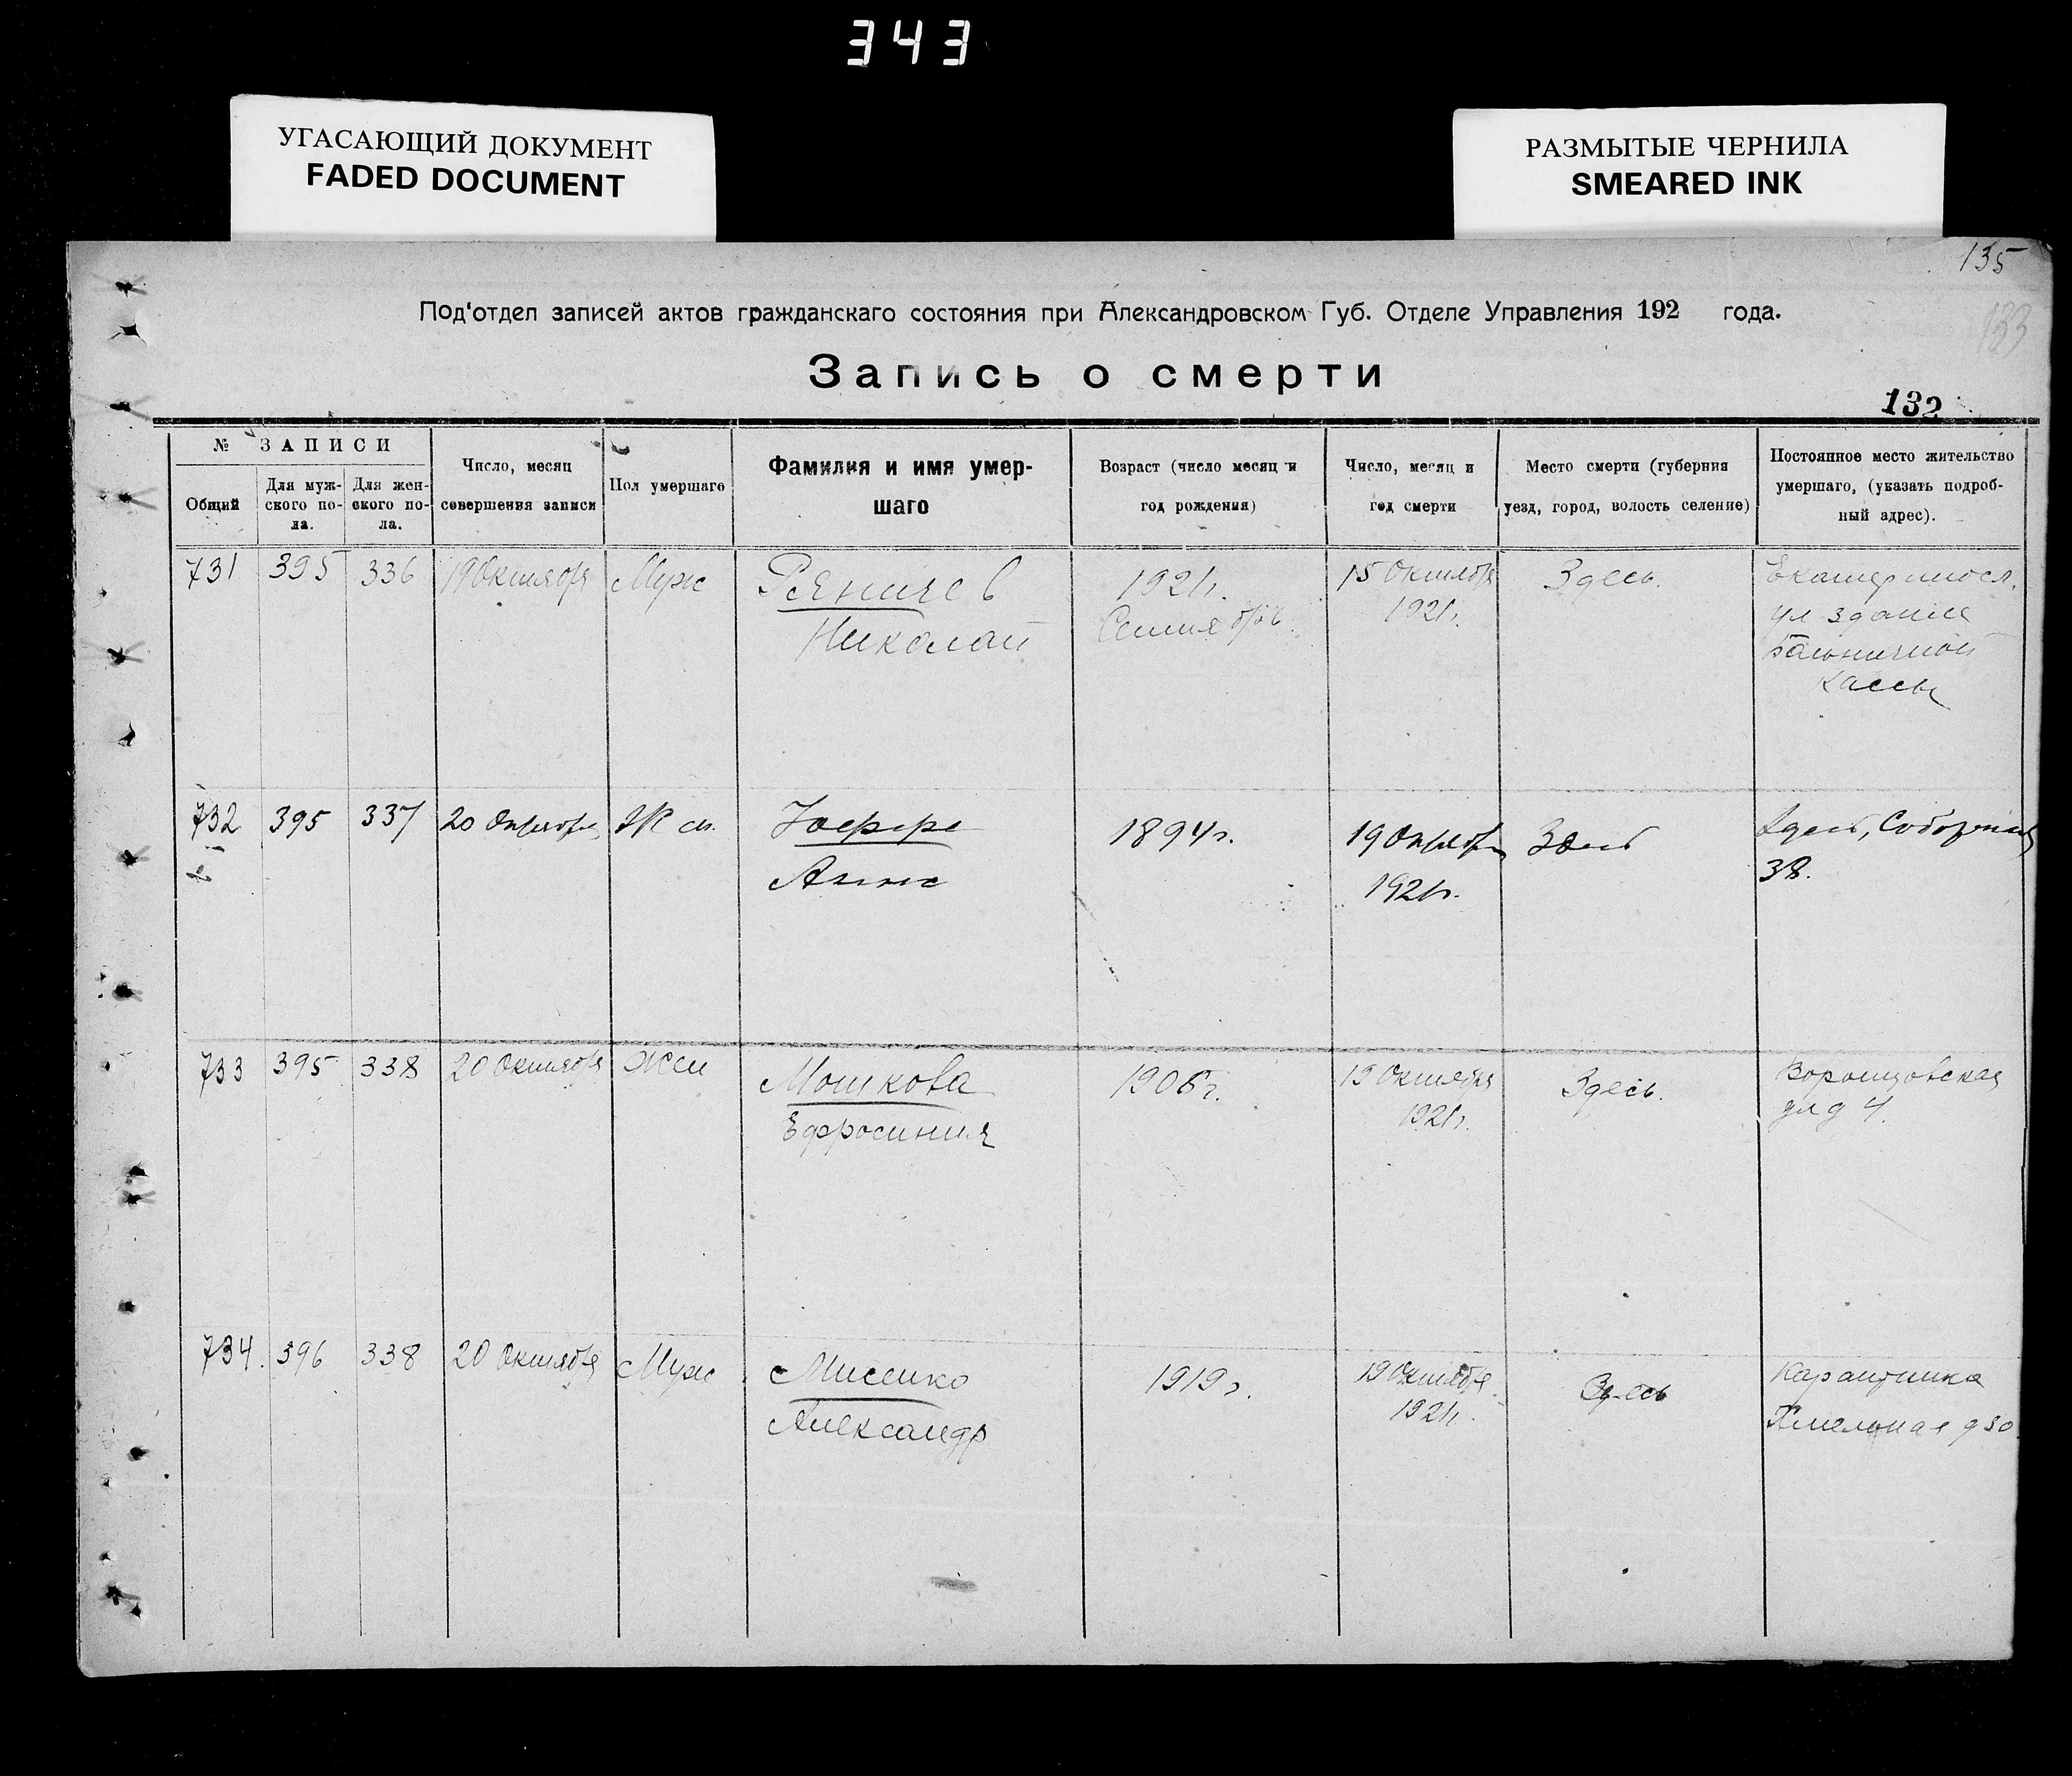 343
УГАСАЮЩИЙ ДОКУМЕНТ
FADED DOCUMENT
РАЗМЫТЫЕ ЧЕРНИЛА
SMEARED INK
135
133
Под'отдел записей актов гражданскаго состояния при Александровском Губ. Отделе Управления 192 года.
Запись о смерти
132
№ ЗАПИСИ
Общий
Для муж-
ского по-
ла.
Для жен-
ского по-
ла.
Число, месяц
совершения записи
Пол умершаго
Фамилия и имя умер-
шаго
Возраст (число месяц и
год рождения)
Число, месяц и
год смерти
Место смерти (губерния
уезд, город, волость селение)
Постоянное место жительство
умершаго, (указать подроб-
ный адрес).
731 395 336 19 Октября Муж
Николай
1921г.
Сентябрь
15 Октября
1921г.
Здесь.
Екатериносл.
ул здание
больничной
кассы
732 395 337 20 Октября Жен.
Иоффе
Анна
1894г.
19 Октября
1921г.
Здесь
Здесь, Соборная
38.
733 395 338 20 Октября Жен
Мошкова
Ефросиния
1906г.
19 Октября
1921г.
Здесь.
Воронцовская
ул д 4.
734. 396 338 20 Октября Муж
Мисенко
Александр
1919г.
19 Октября
1921г.
Здесь
Карантинка
д 30